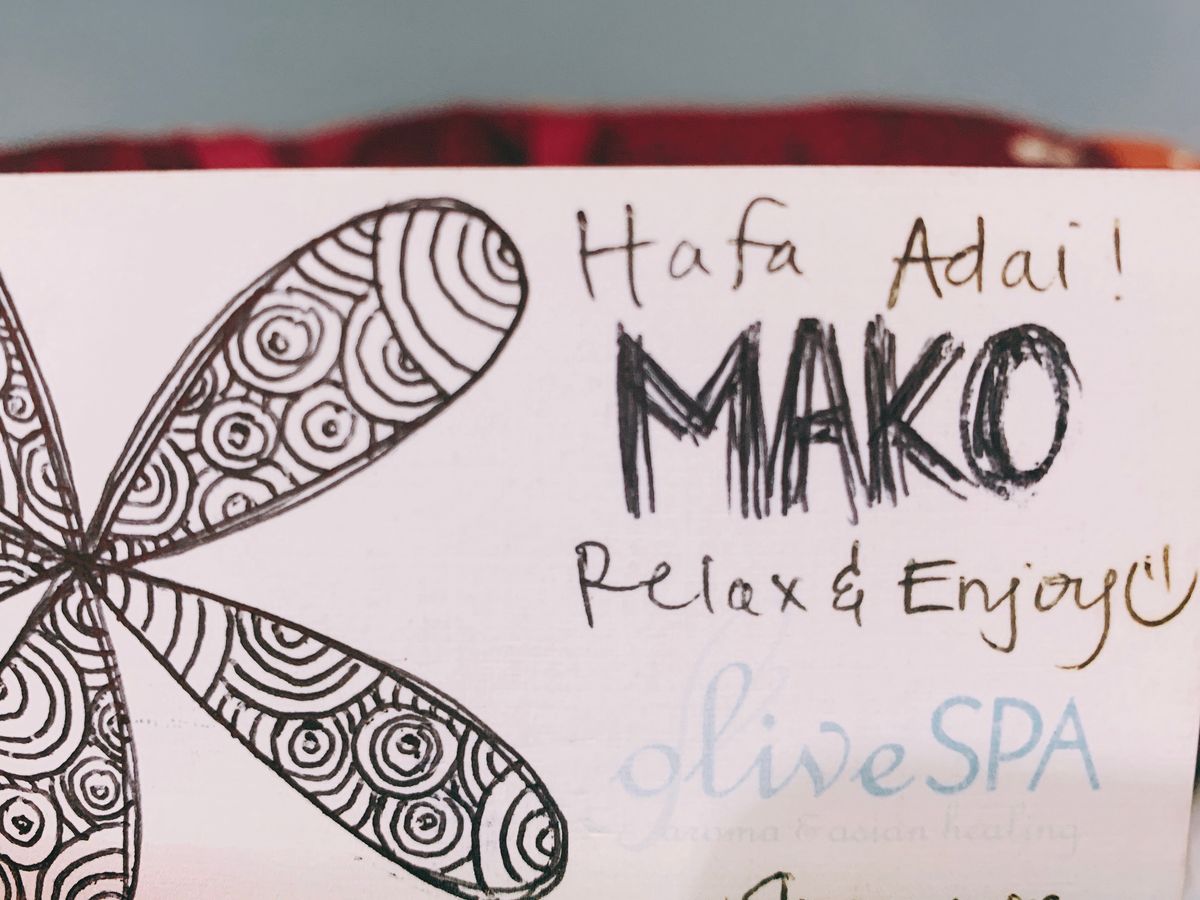 Hafa Adai!
MAKO
Relax & Enjoy
olive SPA
aroma & asian healing